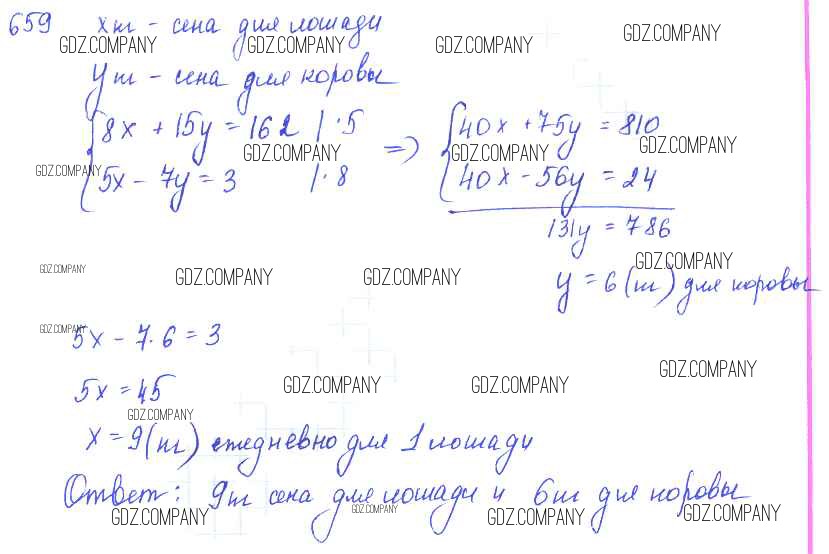 659 х т - сена для лошади
GDZ.COMPANY GDZ.COMPANY GDZ.COMPANY GDZ.COMPANY
у т - сена для коровы
8x + 15y = 162 | · 5 => 40x + 75y = 810
GDZ.COMPANY GDZ.COMPANY GDZ.COMPANY GDZ.COMPANY
5x - 7y = 3 | · 8 40x - 56y = 24
131y = 786
GDZ.COMPANY GDZ.COMPANY GDZ.COMPANY GDZ.COMPANY
y = 6 (т) для коровы
GDZ.COMPANY
5x - 7·6 = 3
GDZ.COMPANY GDZ.COMPANY GDZ.COMPANY
5x = 45
GDZ.COMPANY
x = 9 (т) ежедневно для 1 лошади
Ответ: 9т сена для лошади и 6т для коровы
GDZ.COMPANY GDZ.COMPANY GDZ.COMPANY GDZ.COMPANY